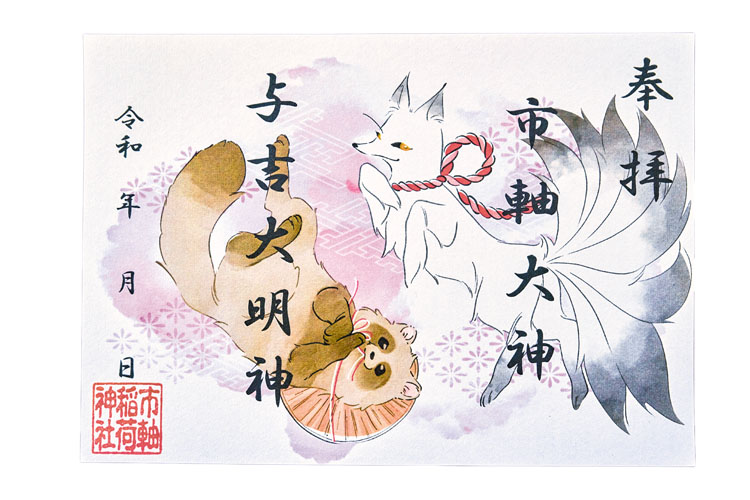 奉拝
市軸大神
与吉大明神
令和　年　月　日
市軸
稲荷
神社